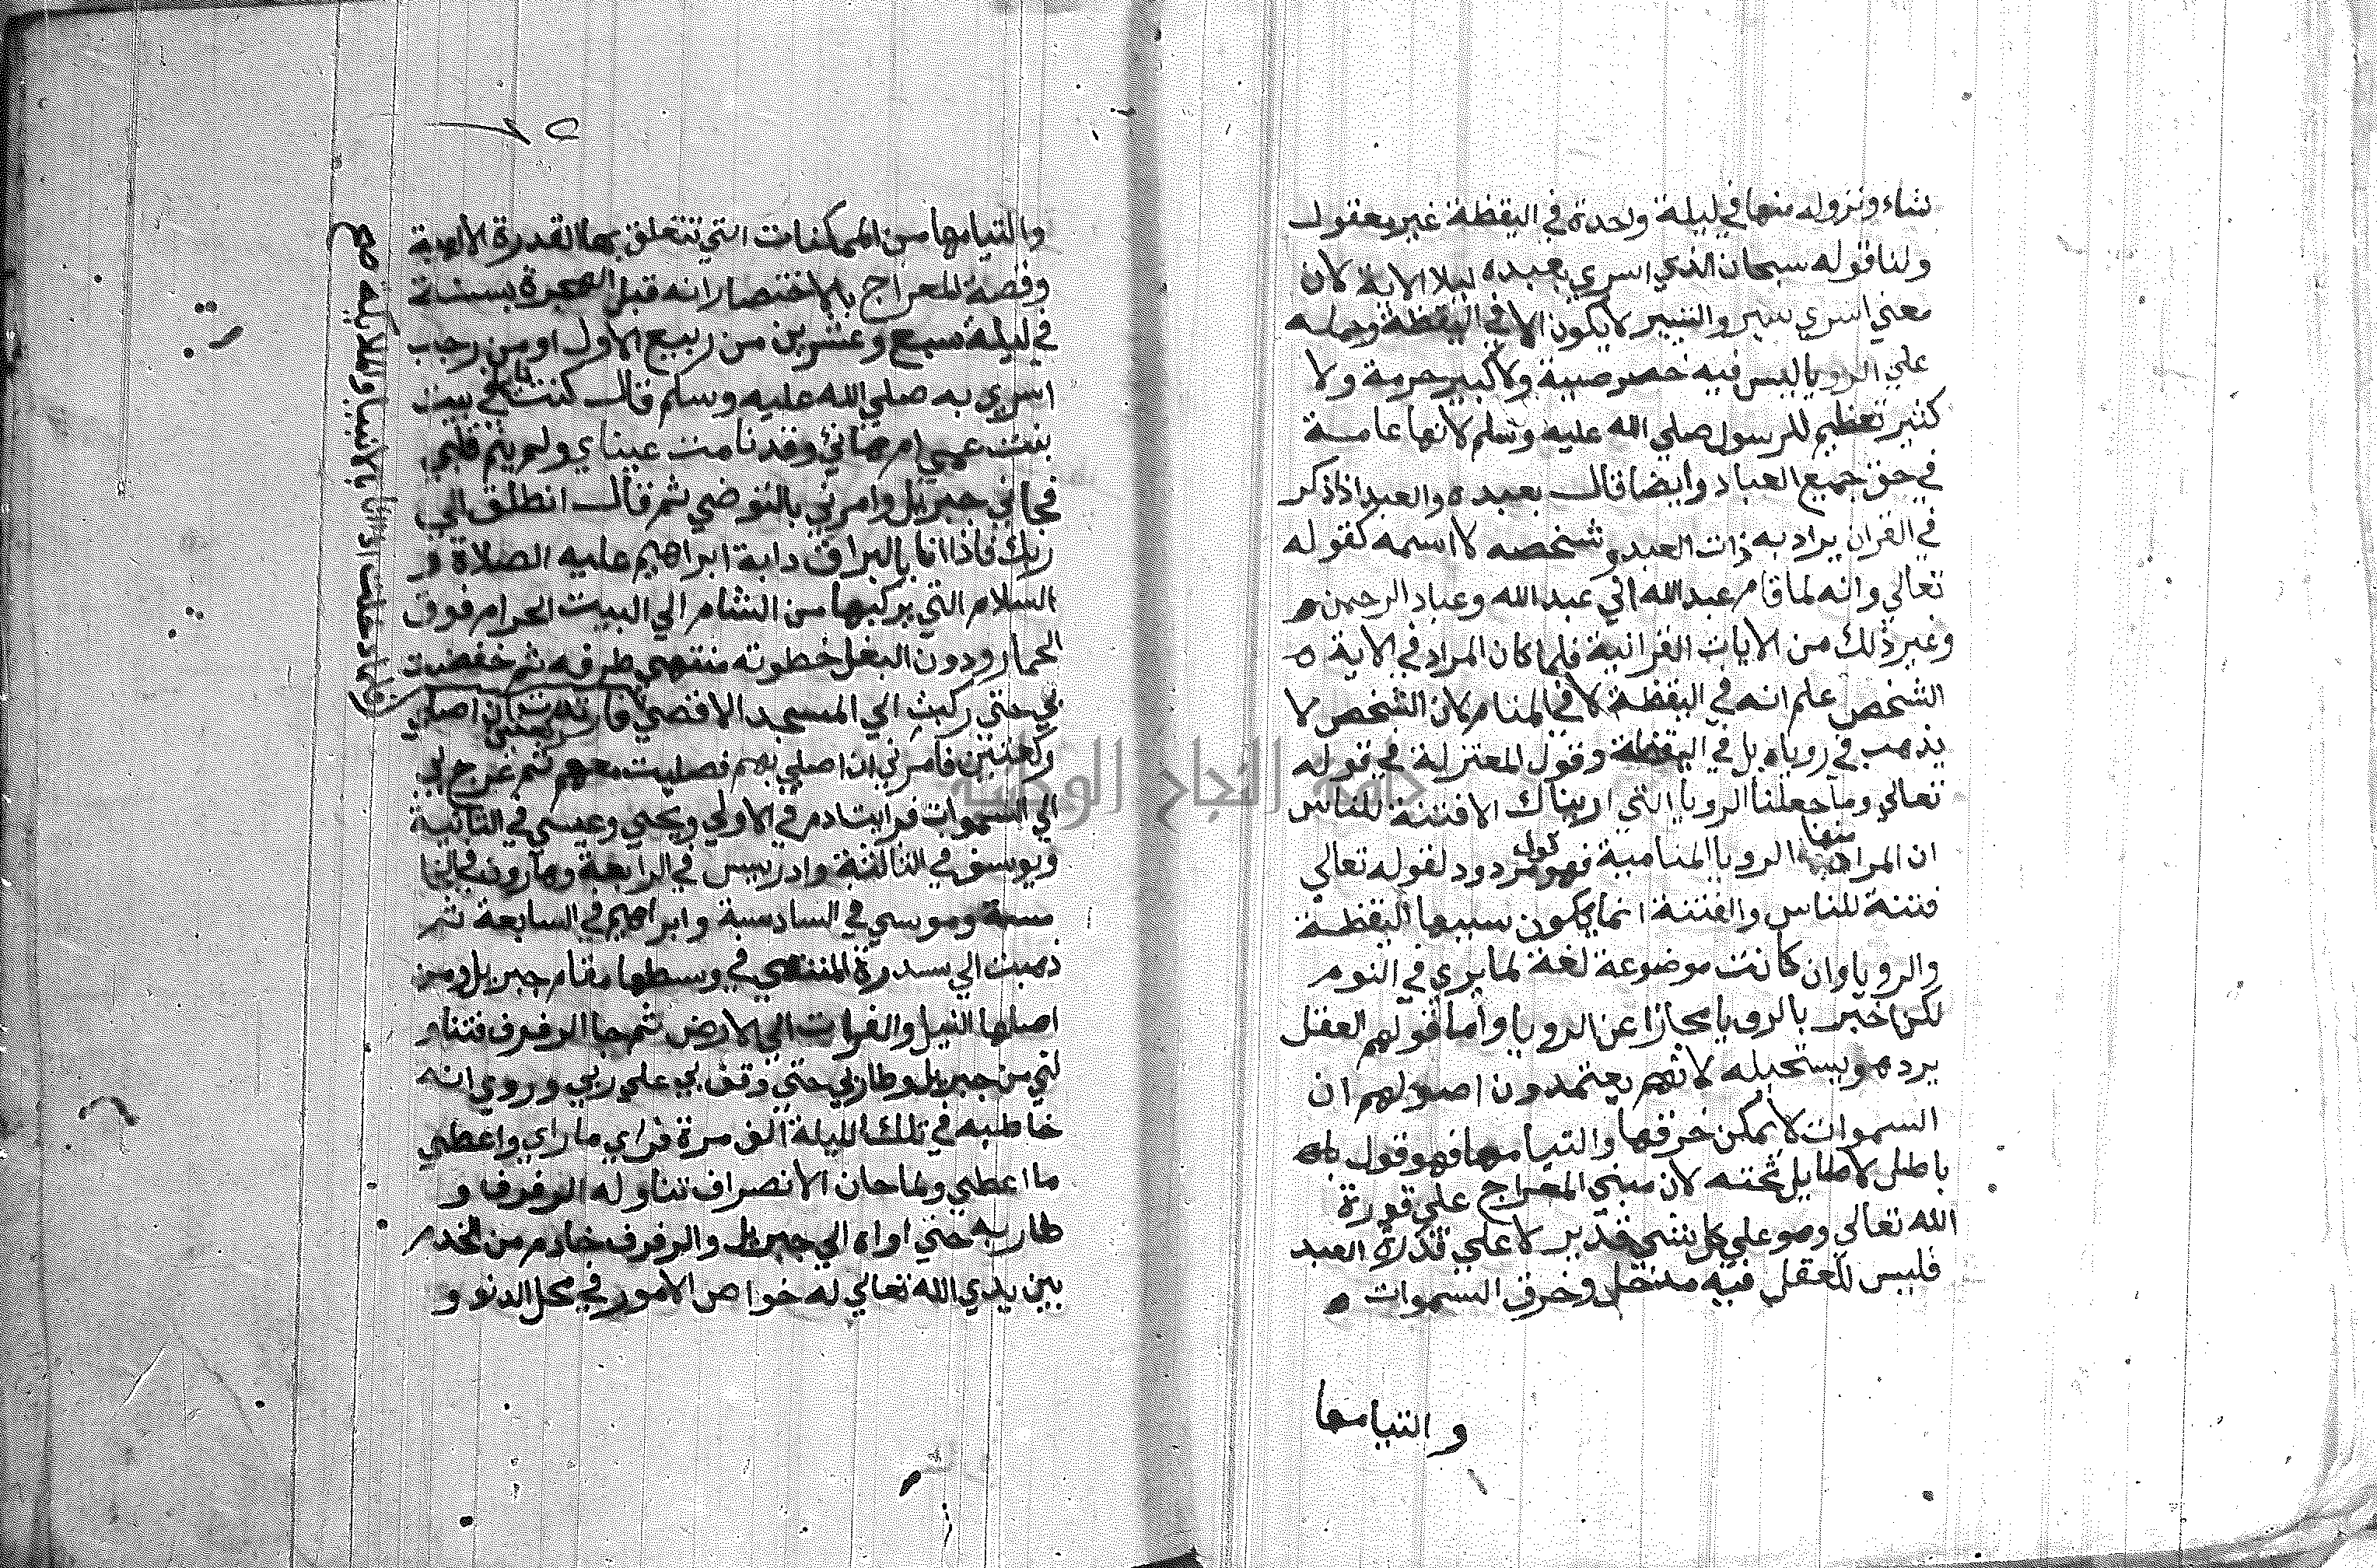 شاء ونزوله منها في ليلة واحدة في اليقظة غير معقول
ولنا قوله سبحان الذي اسري بعبده ليلا الاية لان
معني اسري سير والسير لا يكون الا في اليقظة وحمله
علي الرويا ليس فيه خصوصية ولا كبير حرمة ولا
كثير تعظيم للرسول صلي الله عليه وسلم لانها عامة
في حق جميع العباد وايضا قال بعبده والعبد اذا ذكر
في القران يراد به ذات العبد وشخصه لا اسمه كقوله
تعالي وانه لما قام عبد الله اني عبد الله وعباد الرحمن
وغير ذلك من الايات القرانية فلما كان المراد في الاية
الشخص علم انه في اليقظة لا في المنام لان الشخص لا
يذهب في روياه بل في اليقظة وقول المعتزلة في قوله
تعالي وما جعلنا الرويا التي اريناك الا فتنة للناس
ان المراد منها الرويا المنامية فهو قول مردود لقوله تعالي
فتنة للناس والفتنة انما يكون سببها اليقظة
والرويا وان كانت موضوعة لغة لما يري في النوم
لكن اخبر بالرويا مجازا عن الرويا واما قولهم العقل
يرده ويستحيله لانهم يعتمدون اصولهم ان
السموات لا يمكن خرقها والتيامها فهو قول
باطل لا طايل تحته لان مبني المعراج علي قدرة
الله تعالي وهو علي كل شي قدير لا علي قدرة العبد
فليس للعقل فيه مدخل وخرق السموات
والتيامها
والتيامها من الممكنات التي تتعلق بها القدرة الالهية
وقصة المعراج بالاختصار انه قبل الهجرة بسنة
في ليلة سبع وعشرين من ربيع الاول او من رجب
اسري به صلي الله عليه وسلم قال كنت نايما في بيت
بنت عمي ام هاني وقد نامت عيناي ولم ينم قلبي
فجاني جبريل وامرني بالتوضي ثم قال انطلق الي
ربك فاذا انا بالبراق دابة ابراهيم عليه الصلاة و
السلام التي يركبها من الشام الي البيت الحرام فوق
الحمار ودون البغل خطوته منتهي طرفه ثم خفضت
لي حتي ركبت الي المسجد الاقصي فاردت ان اصلي
ركعتين فامرني ان اصلي بهم فصليت معهم ثم عرج بي
الي السموات فرايت ادم في الاولي ويحيي وعيسي في الثانية
ويوسف في الثالثة وادريس في الرابعة وهارون في الخا
مسة وموسي في السادسة وابراهيم في السابعة ثم
ذهبت الي سدرة المنتهي في وسطها مقام جبريل ومن
اصلها النيل والفرات الي الارض ثم جا الرفرف فتناو
لني من جبريل وطار بي حتي وقف بي علي ربي وروي انه
خاطبه في تلك الليلة الف مرة فراي ما راي واعطي
ما اعطي ولما حان الانصراف تناوله الرفرف و
طار به حتي اواه الي جبريل والرفرف خادم من الخدم
بين يدي الله تعالي له خواص الامور في محل الدنو و
فلما دخلت اذا انا بالانبيا والملايكة صح